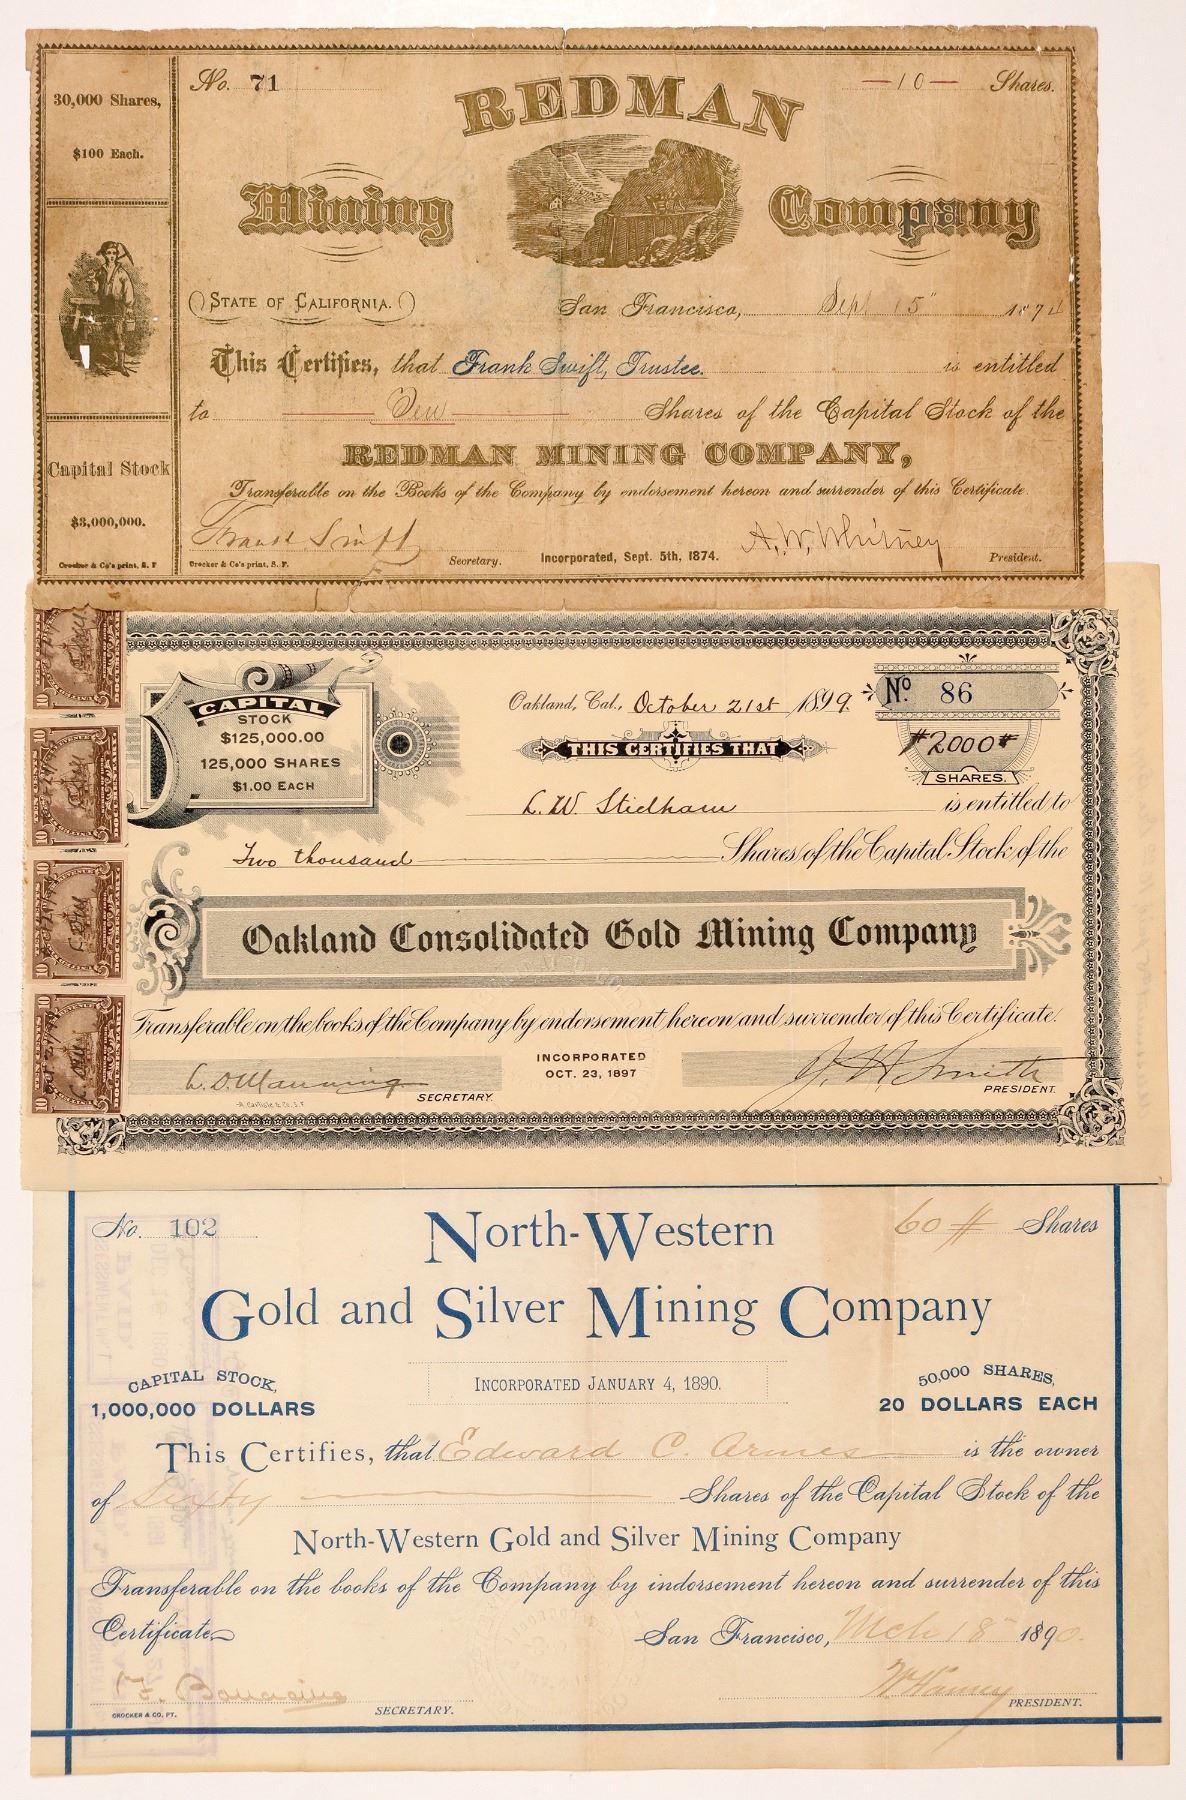 30,000 Shares,
$100 Each.
Capital Stock
$3,000,000.
Crocker & Co's print, S. F
No. 71
REDMAN
—10— Shares.
Mining Company
STATE OF CALIFORNIA.
San Francisco, Sept 15" 1874
This Certifies, that Frank Swift, Trustee. is entitled
to Ten Shares of the Capital Stock of the
REDMAN MINING COMPANY,
Transferable on the Books of the Company by endorsement hereon and surrender of this Certificate.
Frank Swift A. W. Whitney
Crocker & Co's print, S. F. Secretary. Incorporated, Sept. 5th, 1874. President.
CAPITAL
STOCK
$125,000.00
125,000 SHARES
$1.00 EACH
Oakland, Cal., October 21st 1899.
No. 86
THIS CERTIFIES THAT
#2000#
SHARES.
L. W. Stidham is entitled to
Two thousand Shares of the Capital Stock of the
Oakland Consolidated Gold Mining Company
Transferable on the books of the Company by endorsement hereon and surrender of this Certificate.
INCORPORATED
OCT. 23, 1897
L. D. Manning J. H. Smith
SECRETARY. PRESIDENT.
A. Carlisle & Co. S. F
No. 102
North-Western
60 # Shares
Gold and Silver Mining Company
CAPITAL STOCK,
1,000,000 DOLLARS
INCORPORATED JANUARY 4, 1890.
50,000 SHARES,
20 DOLLARS EACH
This Certifies, that Edward C. Armes is the owner
of Sixty Shares of the Capital Stock of the
North-Western Gold and Silver Mining Company
Transferable on the books of the Company by indorsement hereon and surrender of this
Certificate
San Francisco, Mch 18 1890.
SECRETARY. PRESIDENT.
CROCKER & CO. PT.